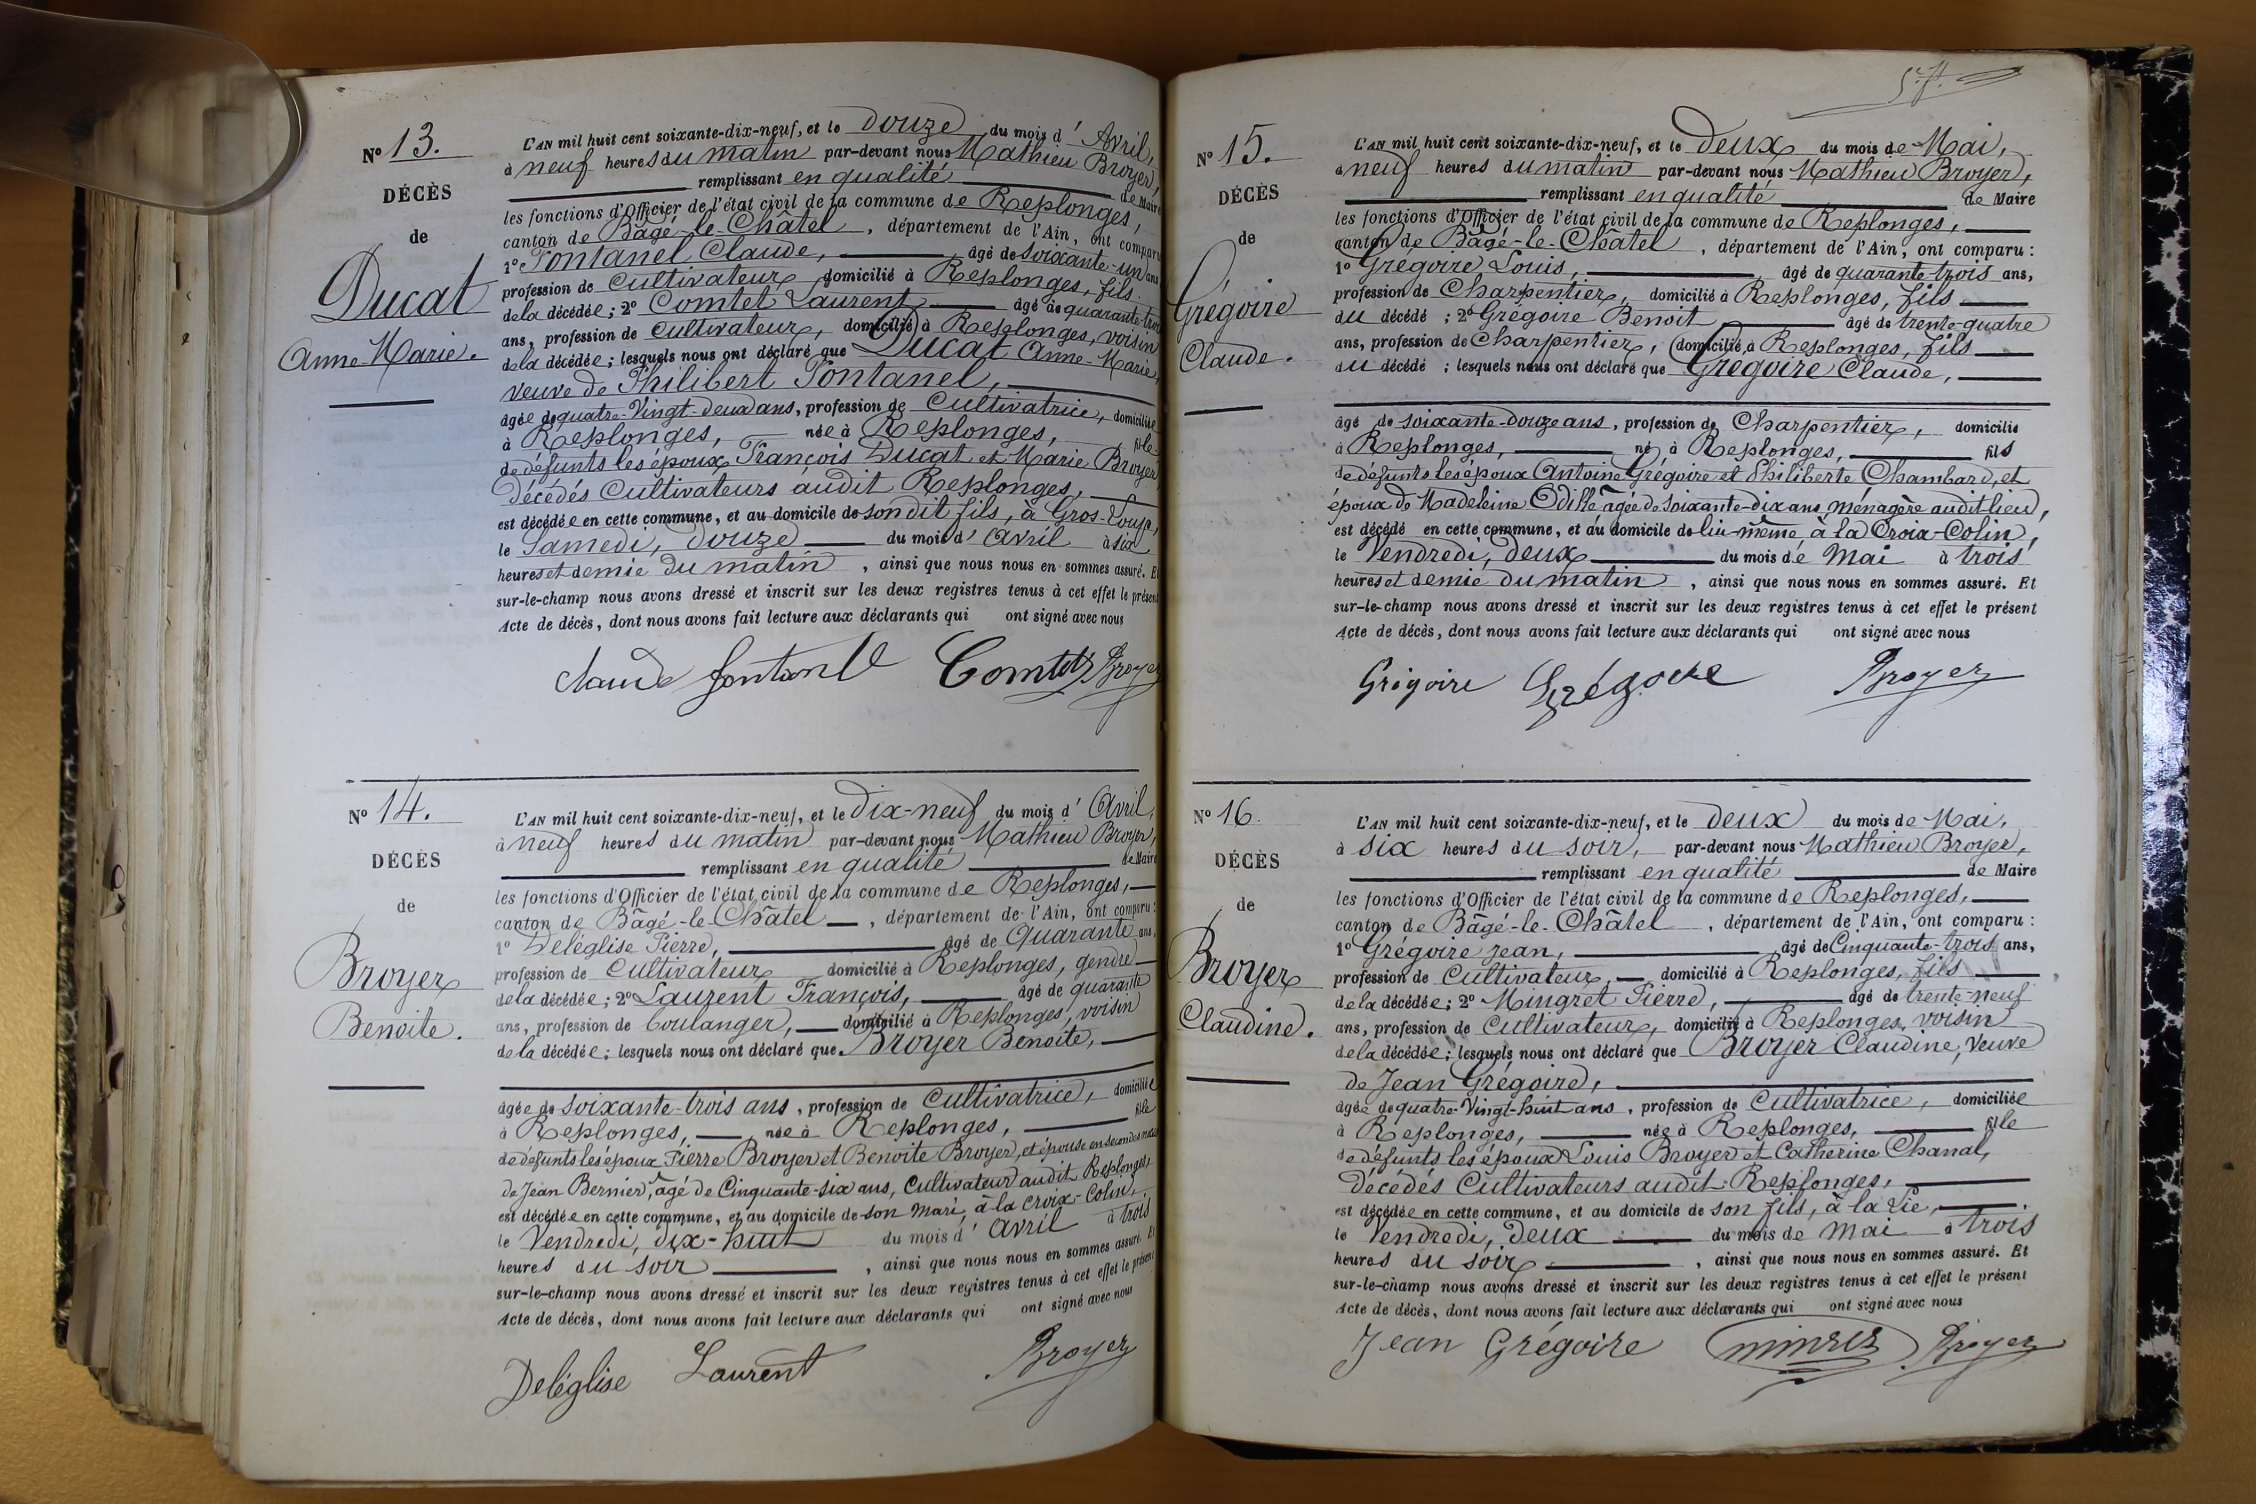 Nº 13.
DÉCÈS
de
Ducat
Anne-Marie.
L'AN mil huit cent soixante-dix-neuf, et le douze du mois d' Avril,
à neuf heures du matin par-devant nous Mathieu Broyer,
remplissant en qualité de Maire
les fonctions d'Officier de l'état civil de la commune de Replonges,
canton de Bâgé-le-Châtel, département de l'Ain, ont comparu
1º Fontanel Claude, âgé de soixante-un ans
profession de Cultivateur domicilié à Replonges, fils
de la décédée; 2º Comtet Laurent âgé de quarante-trois
ans, profession de Cultivateur, domicilié à Replonges, voisin
de la décédée; lesquels nous ont déclaré que Ducat Anne-Marie,
veuve de Philibert Fontanel,
âgée de quatre-Vingt-deux ans, profession de Cultivatrice, domiciliée
à Replonges, née à Replonges, fille
de défunts les époux François Ducat et Marie Broyer
décédés Cultivateurs audit Replonges,
est décédée en cette commune, et au domicile de son dit fils, à Gros-Loup,
le Samedi, douze du mois d' Avril à six
heures et demie du matin, ainsi que nous nous en sommes assuré. Et
sur-le-champ nous avons dressé et inscrit sur les deux registres tenus à cet effet le présent
Acte de décès, dont nous avons fait lecture aux déclarants qui ont signé avec nous
Claude fontanel Comtet Broyer
Nº 14.
DÉCÈS
de
Broyer
Benoite.
L'AN mil huit cent soixante-dix-neuf, et le Dix-neuf du mois d' Avril,
à neuf heures du matin par-devant nous Mathieu Broyer,
remplissant en qualité de Maire
les fonctions d'Officier de l'état civil de la commune de Replonges,
canton de Bâgé-le-Châtel, département de l'Ain, ont comparu :
1º Deléglise Pierre, âgé de Quarante ans,
profession de Cultivateur domicilié à Replonges, gendre
de la décédée; 2º Laurent François, âgé de quarante
ans, profession de boulanger, domicilié à Replonges, voisin
de la décédée; lesquels nous ont déclaré que Broyer Benoite,
âgée de soixante-trois ans, profession de Cultivatrice, domiciliée
à Replonges, née à Replonges, fille
de défunts les époux Pierre Broyer et Benoite Broyer, et épouse en secondes noces
de Jean Bernier, âgé de Cinquante-six ans, Cultivateur audit Replonges,
est décédée en cette commune, et au domicile de son mari, à la Croix-Colin,
le Vendredi, dix-huit du mois d' Avril à trois
heures du soir, ainsi que nous nous en sommes assuré. Et
sur-le-champ nous avons dressé et inscrit sur les deux registres tenus à cet effet le présent
Acte de décès, dont nous avons fait lecture aux déclarants qui ont signé avec nous
Deléglise Laurent Broyer
Nº 15.
DÉCÈS
de
Grégoire
Claude.
L'AN mil huit cent soixante-dix-neuf, et le deux du mois de Mai,
à neuf heures du matin par-devant nous Mathieu Broyer,
remplissant en qualité de Maire
les fonctions d'Officier de l'état civil de la commune de Replonges,
canton de Bâgé-le-Châtel, département de l'Ain, ont comparu :
1º Grégoire Louis, âgé de quarante-trois ans,
profession de Charpentier, domicilié à Replonges, fils
du décédé ; 2º Grégoire Benoit âgé de trente-quatre
ans, profession de Charpentier, domicilié à Replonges, fils
du décédé ; lesquels nous ont déclaré que Grégoire Claude,
âgé de soixante-douze ans, profession de Charpentier, domicilié
à Replonges, né à Replonges, fils
de défunts les époux Antoine Grégoire et Philiberte Chambard, et
époux de Madeleine Odille âgée de soixante-dix ans, ménagère audit lieu,
est décédé en cette commune, et au domicile de lui-même, à la Croix-Colin,
le Vendredi, deux du mois de Mai à trois
heures et demie du matin, ainsi que nous nous en sommes assuré. Et
sur-le-champ nous avons dressé et inscrit sur les deux registres tenus à cet effet le présent
Acte de décès, dont nous avons fait lecture aux déclarants qui ont signé avec nous
Grégoire Grégoire Broyer
Nº 16.
DÉCÈS
de
Broyer
Claudine.
L'AN mil huit cent soixante-dix-neuf, et le deux du mois de Mai,
à six heures du soir, par-devant nous Mathieu Broyer,
remplissant en qualité de Maire
les fonctions d'Officier de l'état civil de la commune de Replonges,
canton de Bâgé-le-Châtel, département de l'Ain, ont comparu :
1º Grégoire Jean, âgé de Cinquante-trois ans,
profession de Cultivateur, domicilié à Replonges, fils
de la décédée; 2º Mingret Pierre, âgé de trente-neuf
ans, profession de Cultivateur, domicilié à Replonges, voisin
de la décédée; lesquels nous ont déclaré que Broyer Claudine, veuve
de Jean Grégoire,
âgée de quatre-Vingt-huit ans, profession de Cultivatrice, domiciliée
à Replonges, née à Replonges, fille
de défunts les époux Louis Broyer et Catherine Chanal,
décédés Cultivateurs audit Replonges,
est décédée en cette commune, et au domicile de son fils, à la Vie,
le Vendredi, deux du mois de Mai à trois
heures du soir, ainsi que nous nous en sommes assuré. Et
sur-le-champ nous avons dressé et inscrit sur les deux registres tenus à cet effet le présent
Acte de décès, dont nous avons fait lecture aux déclarants qui ont signé avec nous
Jean Grégoire Broyer